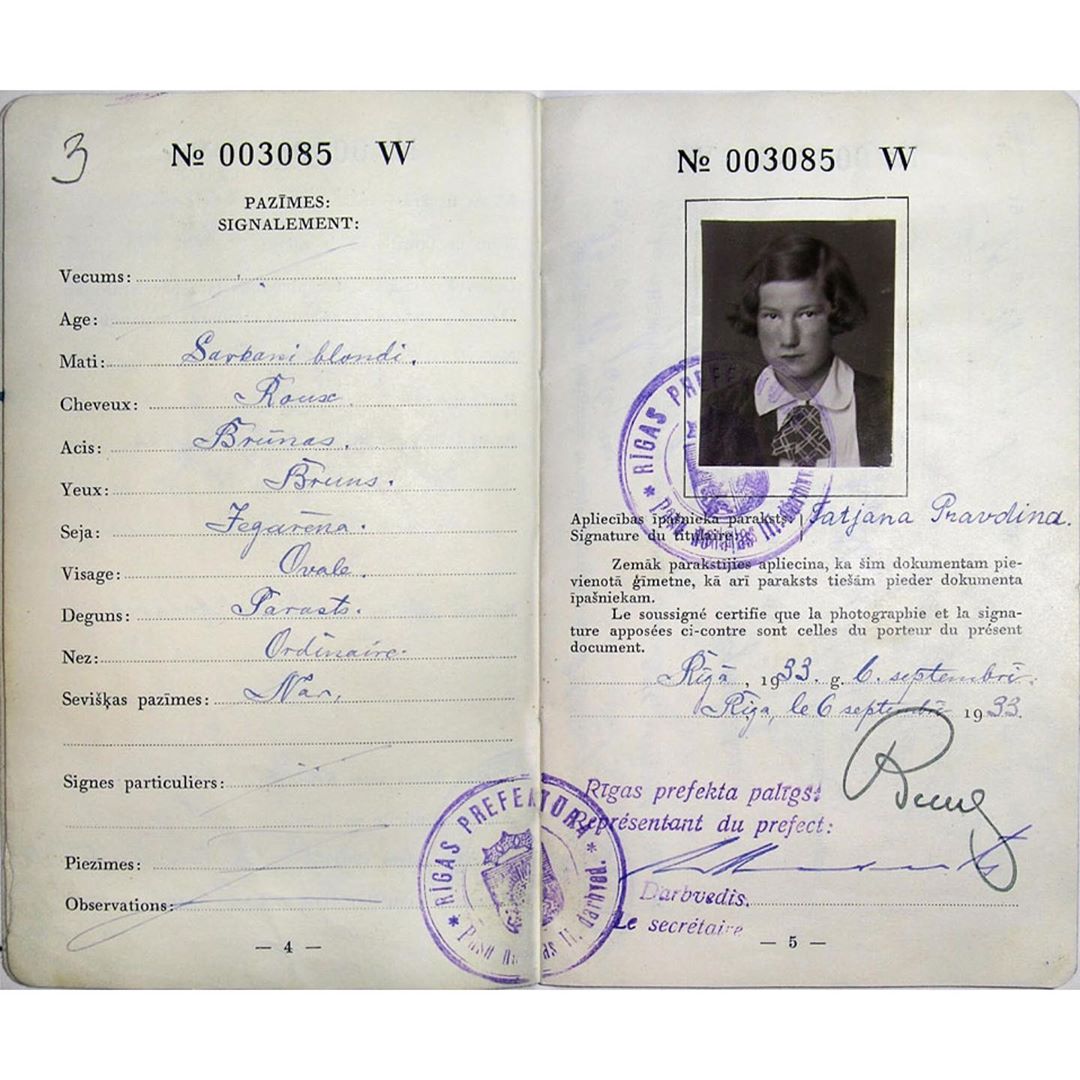 3
№ 003085 W
PAZĪMES:
SIGNALEMENT:
Vecums:
Age:
Mati: Sarkani blondi.
Cheveux: Roux.
Acis: Brūnas.
Yeux: Bruns.
Seja: Iegarēna.
Visage: Ovale.
Deguns: Parasts.
Nez: Ordinaire.
Sevišķas pazīmes: Nav.
Signes particuliers:
Piezīmes:
Observations:
RĪGAS PREFEKTŪRA
— 4 —
№ 003085 W
RĪGAS PREFE
Apliecības īpašnieka paraksts: Tatjana Pravdina.
Signature du titulaire:
Zemāk parakstījies apliecina, ka šim dokumentam pie-
vienotā ģīmetne, kā arī paraksts tiešām pieder dokumenta
īpašniekam.
Le soussigné certifie que la photographie et la signa-
ture apposées ci-contre sont celles du porteur du présent
document.
Rīgā, 1933. g. 6. septembrī.
Rīga, le 6 septembrī 1933.
Rīgas prefekta palīgs:
Représentant du prefect:
Darbvedis.
Le secrétaire
— 5 —